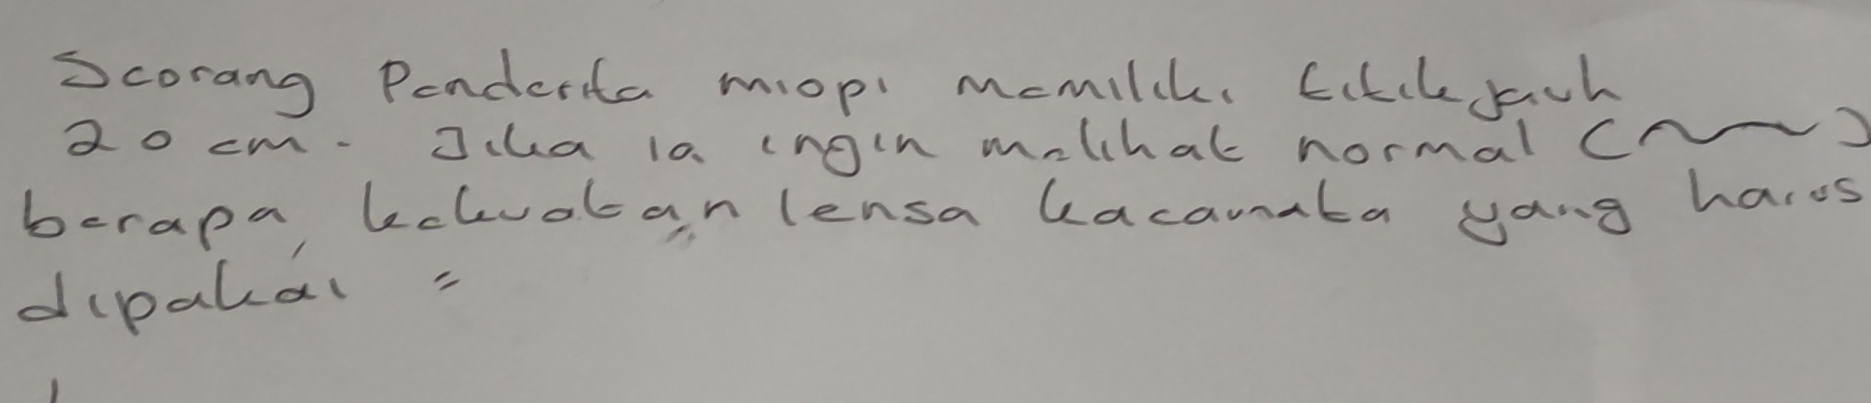 Seorang Penderita miopi memiliki titik jauh
20 cm. Jika ia ingin melihat normal (~)
berapa, kekuatan lensa kacamata yang harus
dipakai =